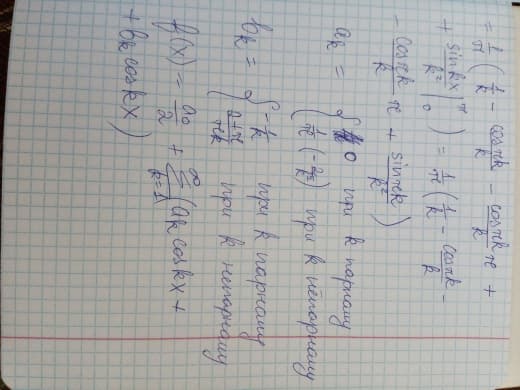 = 1/π ( 1/k - cosπk/k - cosπk/k π +
+ sinkx/k² |₀^π ) = 1/π ( 1/k - cosπk/k -
- cosπk/k π + sinπk/k² )
aₖ = { 0 при k парному
1/π (-2/k²) при k непарному
bₖ = { -1/k при k парному
2+π/πk при k непарному
f(x) = a₀/2 + ∑_{k=1}^∞ (aₖ coskx +
+ bₖ coskx)